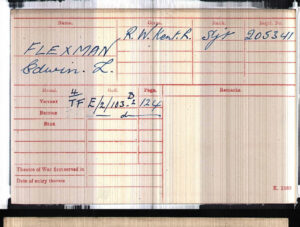 Name. Corps. Rank. Regtl. No.
FLEXMAN R.W.Kent.R. Sjt 205341
Edwin. L.
Medal. Roll. Page. Remarks.
Victory 4/TF E/2/103.B2 124
British
Star
Theatre of War first served in
Date of entry therein
K. 1380